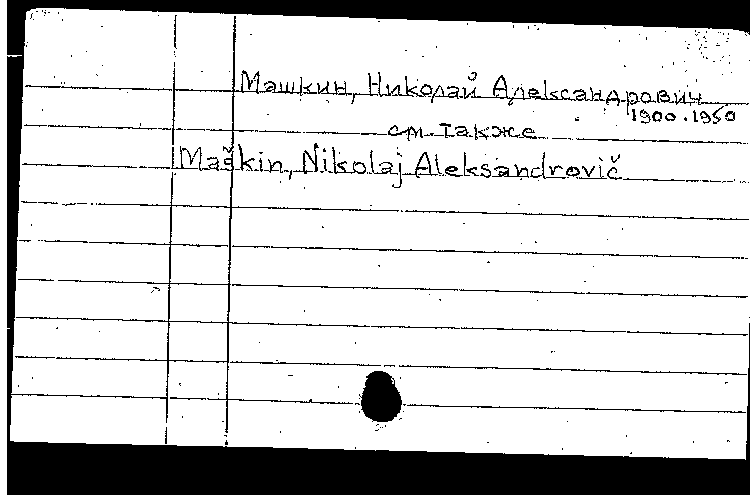 Машкин, Николай Александрович
1900.1950
см. также
Maškin, Nikolaj Aleksandrovič